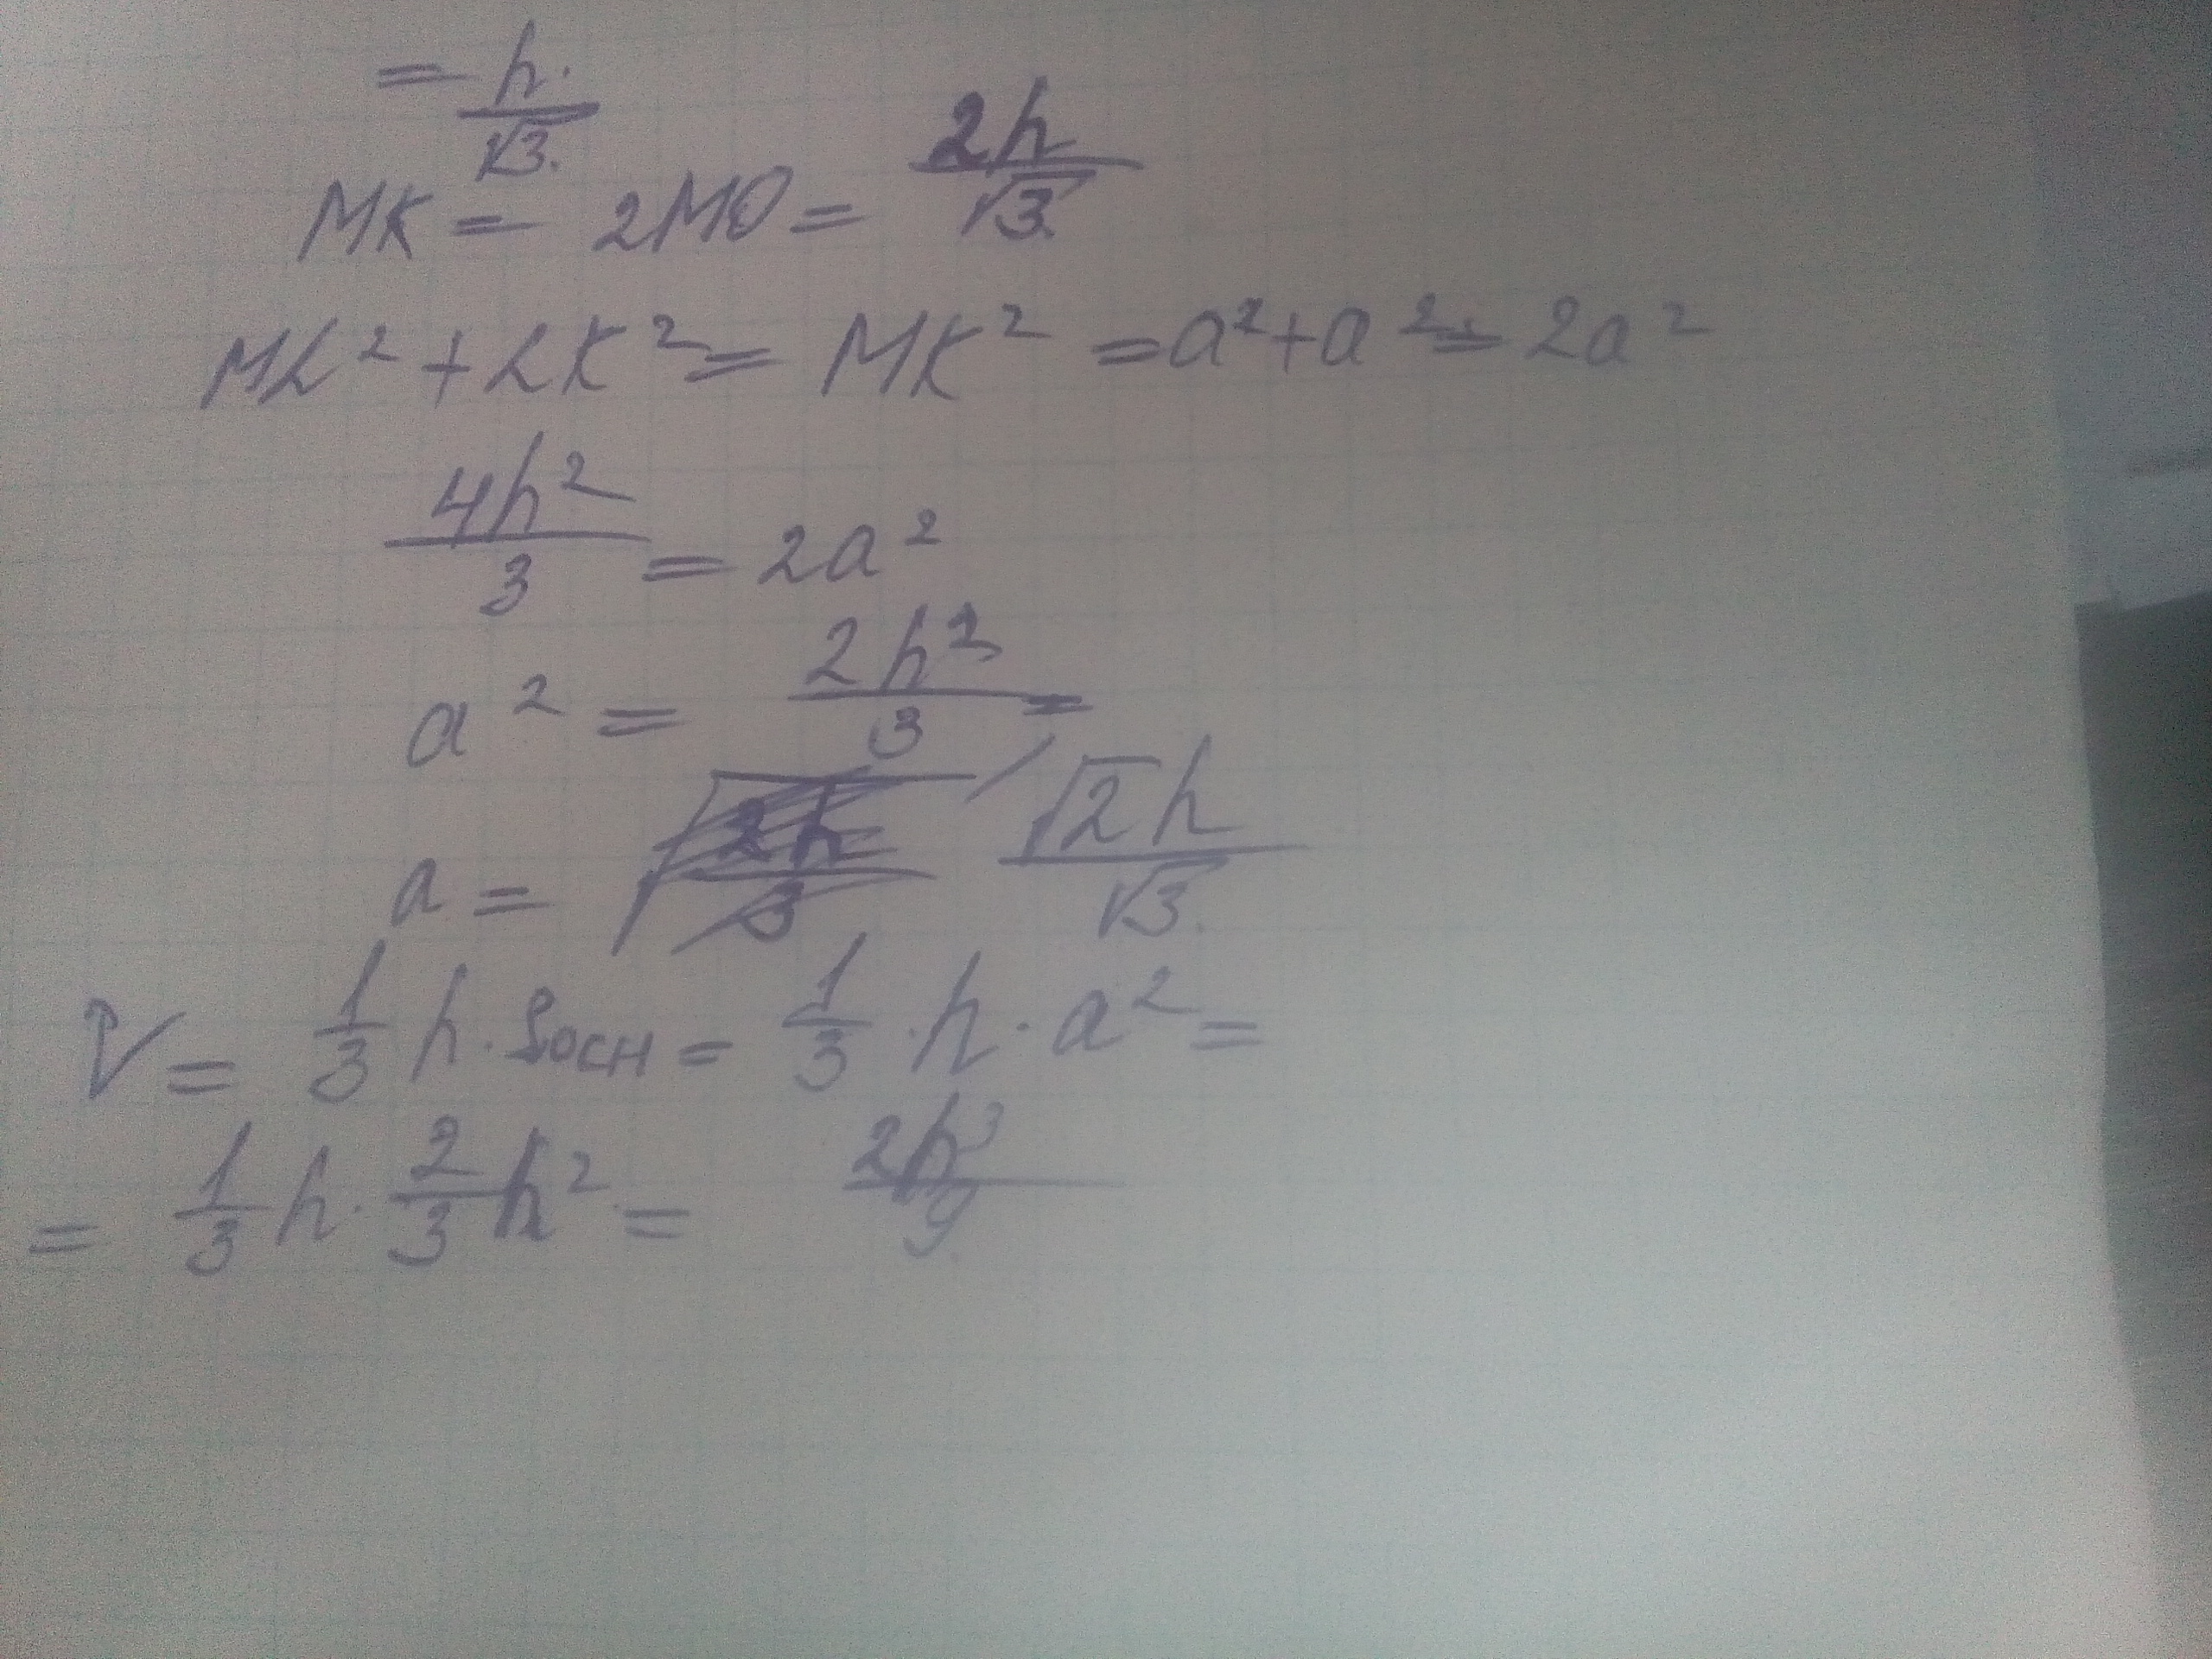 = h/√3
MK = 2MO = 2h/√3
ML² + LK² = MK² = a² + a² = 2a²
4h²/3 = 2a²
a² = 2h²/3 =
a = √2h/√3
V = 1/3 h · Sосн = 1/3 · h · a² =
= 1/3 h · 2/3 h² = 2h³/9